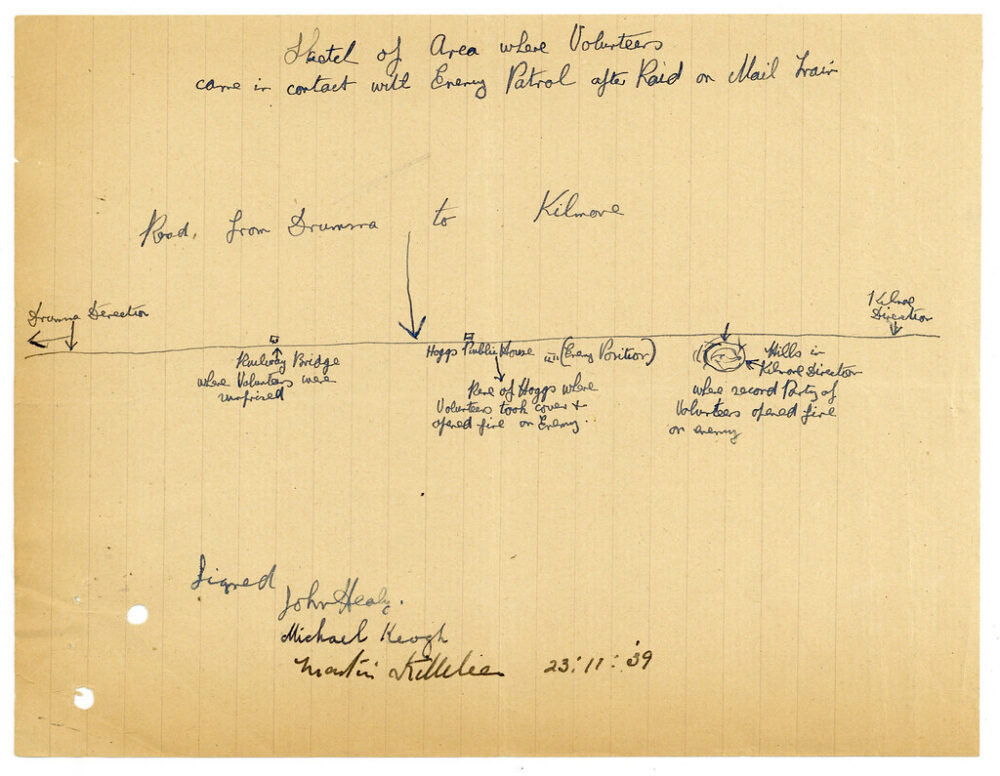 Sketch of Area where Volunteers
came in contact with Enemy Patrol after Raid on Mail Train
Road. from Drumna to Kilmore
Drumna Direction
Kilmore
Direction
Railway Bridge
where Volunteers were
surprised
Hoggs Public House
(Enemy Position)
Rere of Hoggs where
Volunteers took cover &
opened fire on Enemy.
Hills in
Kilmore Direction
where second Party of
Volunteers opened fire
on enemy
Signed
John Healy.
Michael Keogh
Martin Killilea 23:11:39